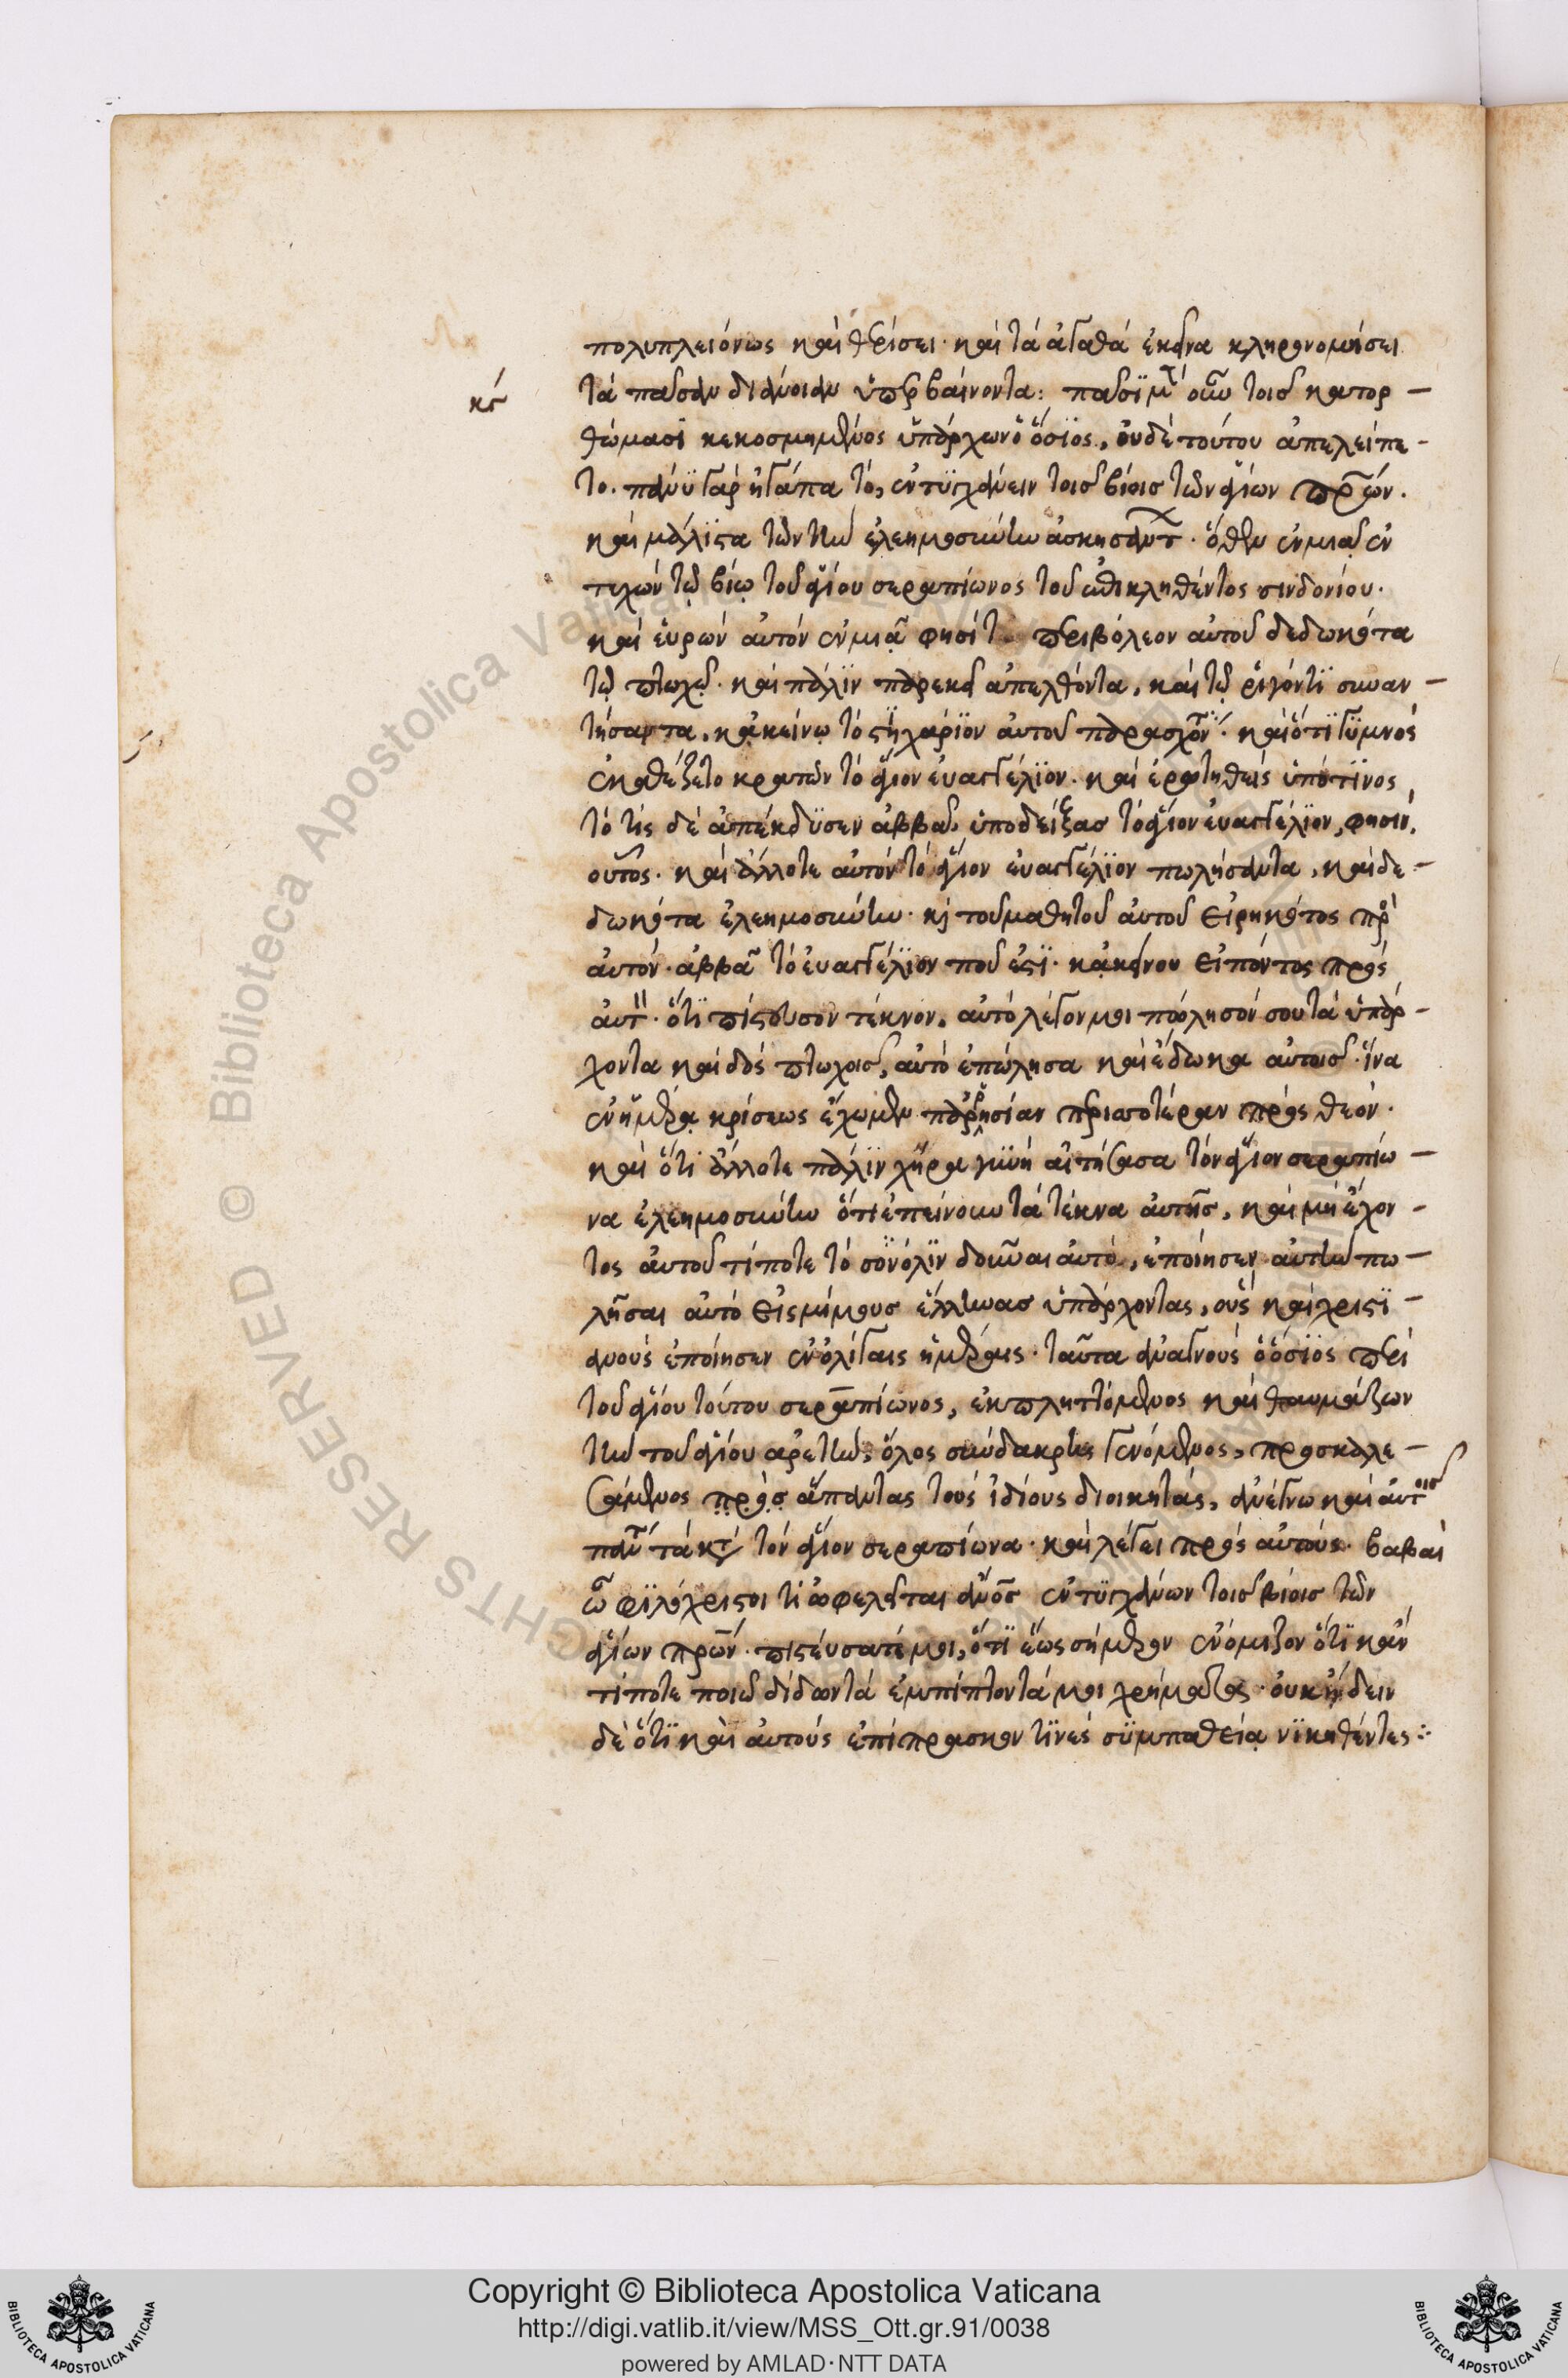 πολυπλειόνως καὶ θερίσει· καὶ τὰ ἀγαθὰ ἐκεῖνα κληρονομήσει
κϛ
τὰ πᾶσαν διάνοιαν ὑπερβαίνοντα: πᾶσϊ μὲν οὖν τοῖς κατορ –
θώμασϊ κεκοσμημένος ὑπάρχων ὁ ὅσϊος, οὐδὲ τούτου ἀπελείπε –
το. πάνϋ γὰρ ἠγάπα τὸ, ἐντϋγχάνειν τοῖς βίοις τῶν ἁγίων πρων.
καὶ μάλϊστα τῶν τὴν ἐλεημοσύνην ἀσκησάντ. ὅθεν ἐν μιᾷ ἐν
τυχὼν τῷ βίῳ τοῦ ἁγίου σεραπίωνος τοῦ ἐπικληθέντος σινδονίου.
καὶ εὑρὼν αὐτὸν ἐν μιᾷ φησὶ τ περιβόλεον αὐτοῦ δεδωκότα
τῷ πτωχῷ. καὶ πάλϊν παρεκεῖ ἀπελθόντα, καὶ τῷ ῥιγόντϊ συναν –
τήσαντα, κἀκείνῳ τὸ στϊχάρϊον αὐτοῦ παρασχόντ. καὶ ὅτϊ γϋμνὸς
ἐκαθέζετο κρατῶν τὸ ἅγιον εὐαγγέλϊον. καὶ ἐρωτηθεὶς ὑπό τϊνος,
τὸ τίς σὲ ἀπέκδϋσεν ἀββᾶ, ὑποδείξας τὸ ἅγιον εὐαγγέλϊον, φησὶν,
οὗτος. καὶ ἄλλοτε αὐτὸν τὸ ἅγιον εὐαγγέλϊον πωλήσαντα, καὶ δε –
δωκότα ἐλεημοσύνην. κ τοῦ μαθητοῦ αὐτοῦ εἰρηκότος πρ
αὐτόν. ἀββᾶ τὸ εὐαγγέλϊον ποῦ ἐστϊ. κἀκείνου εἰπόντος πρὸς
αὐτ. ὅτϊ πίστευσον τέκνον, αὐτὸ λέγον μοι πώλησόν σου τὰ ὑπάρ –
χοντα καὶ δὸς πτωχοῖς, αὐτὸ ἐπώλησα καὶ ἔδωκα αὐτοῖς. ἵνα
ἐν ἡμέρᾳ κρίσεως ἔχωμεν παρρησίαν περισσοτέραν πρὸς θεόν.
καὶ ὅτϊ ἄλλοτε πάλϊν χήρα γϋνὴ αἰτήσασα τὸν ἅγιον σεραπίω –
να ἐλεημοσύνην ὅτι ἐπείνουν τὰ τέκνα αὐτῆς, καὶ μὴ ἔχον –
τος αὐτοῦ τίποτε τὸ σϋνόλϊν δοῦναι αὐτὸ, ἐποίησεν αὐτὴν πω –
λῆσαι αὐτὸ εἰς μίμους ἕλληνας ὑπάρχοντας, οὓς καὶ χριστϊ –
ανοὺς ἐποίησεν ἐν ὀλίγαις ἡμέραις. ταῦτα ἀναγνοὺς ὁ ὅσϊος περὶ
τοῦ ἁγίου τούτου σεραπίωνος, ἐκπληττόμενος καὶ θαυμάζων
τὴν τοῦ ἁγίου ἀρετὴν, ὅλος σύνδακρϋς γενόμενος, προσκαλε –
σάμενος πρὸς ἅπαντας τοὺς ἰδίους διοικητὰς, ἀνέγνω καὶ αὐτοῖς
πάντ τὰ κτ τὸν ἅγιον σεραπίωνα. καὶ λέγει πρὸς αὐτούς. βαβαὶ
ὦ φϊλόχριστοι τί ὠφελεῖται ἀνος ἐντϋγχάνων τοῖς βίοις τῶν
ἁγίων πρων. πιστεύσατέ μοι, ὅτϊ ἕως σήμερον ἐνόμιζον ὅτϊ κἂν
τίποτε ποιῶ διδοὺς τὰ ἐμπίπτοντά μοι χρήματα. οὐκ ᾔδειν
δὲ ὅτϊ καὶ αὐτοὺς ἐπίπρασκον τϊνὲς σϋμπαθείᾳ νϊκηθέντες:·
© Biblioteca Apostolica Vaticana
RIGHTS RESERVED
Copyright © Biblioteca Apostolica Vaticana
http://digi.vatlib.it/view/MSS_Ott.gr.91/0038
powered by AMLAD·NTT DATA
BIBLIOTECA APOSTOLICA VATICANA
BIBLIOTECA APOSTOLICA VATICANA